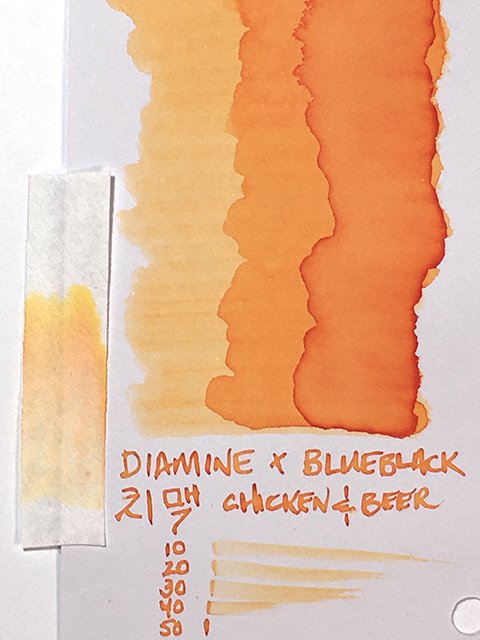 DIAMINE x BLUEBLACK
치맥 CHICKEN & BEER
10
20
30
40
50